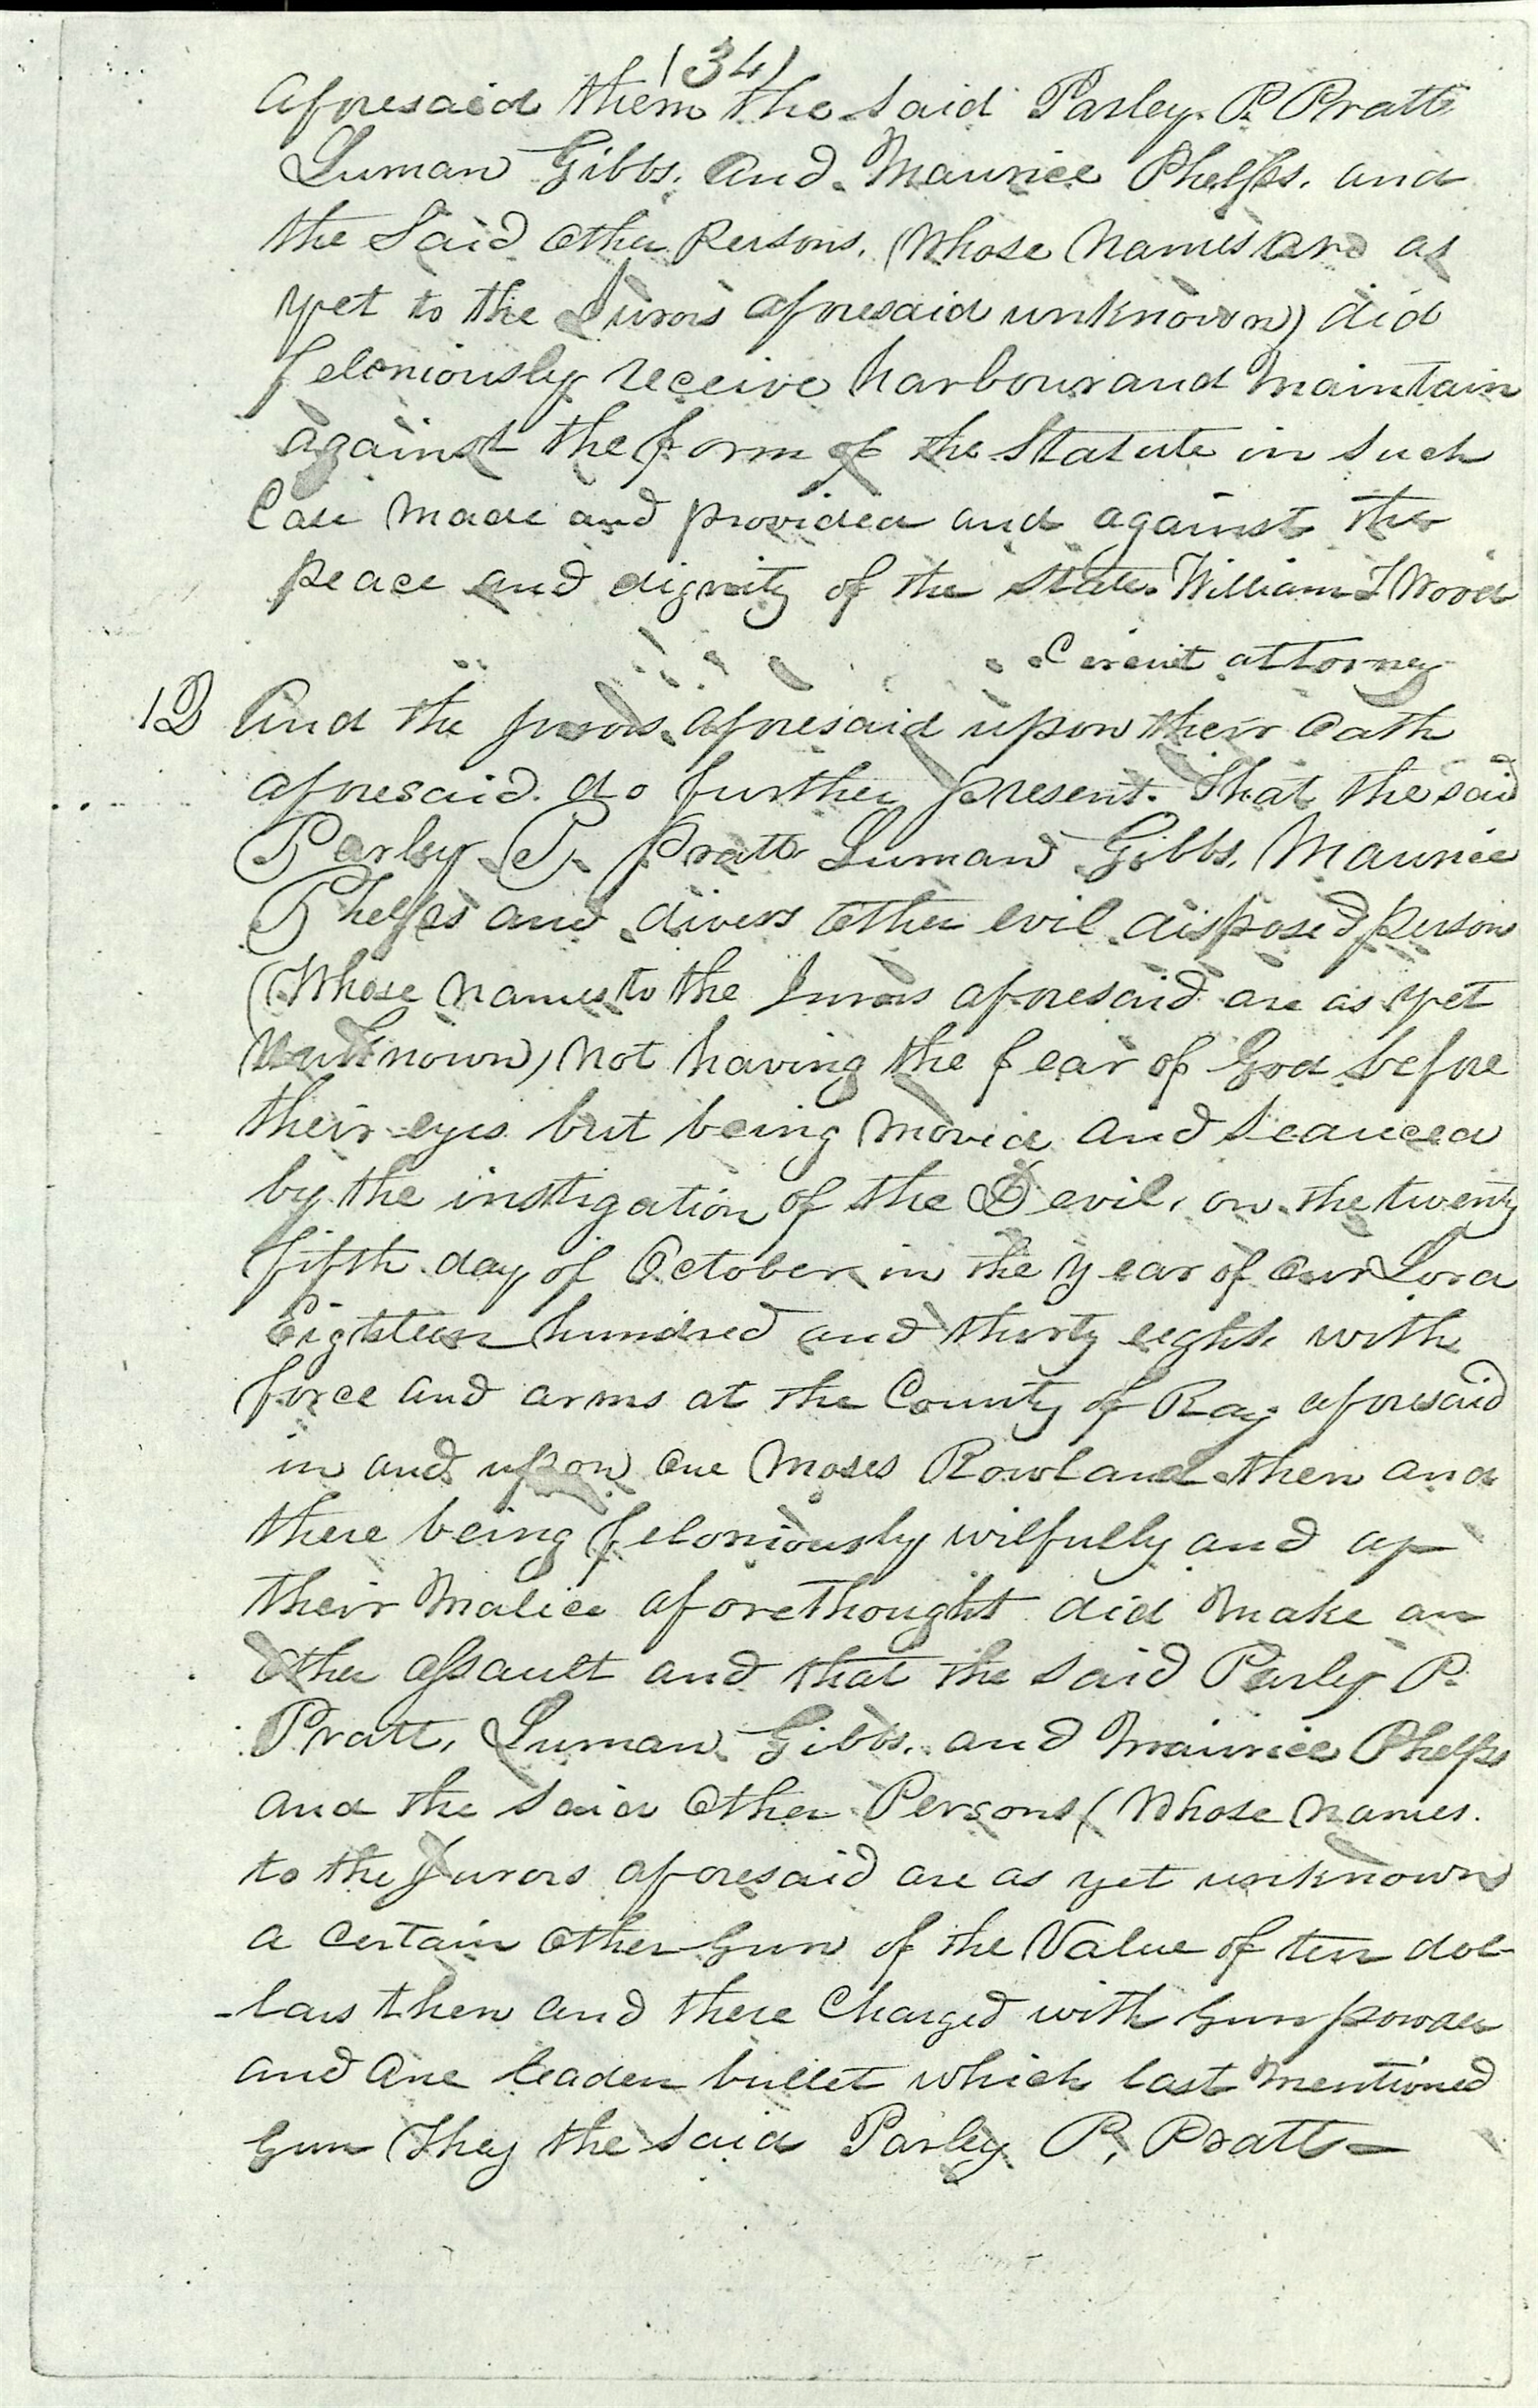 (34)
aforesaid them the said Parley. P. Pratt
Luman Gibbs. and. Maurice Phelps. and
the Said other Persons. (Whose Names are as
yet to the Jurors aforesaid unknown) did
feloniously receive harbour and Maintain
against the form of the Statute in such
Case Made and provided and against the
peace and dignity of the State. William T Wood
Circuit attorney
And the jurors aforesaid upon their Oath
aforesaid. do further present. That the said
Parley P. Pratt Luman Gibbs, Maurice
Phelps and divers other evil disposed persons
(Whose Names to the Jurors aforesaid are as yet
unknown) Not having the fear of God before
their eyes but being Movid and Seauced
by the instigation of the Devil, on the twenty
fifth day of October in the year of Our Lord
Eighteen hundred and thirty eight with
force and arms at the County of Ray aforesaid
in and upon one Moses Rowland then and
there being feloniously wilfully and of
their Malice aforethought did Make an
other assault and that the said Parley P.
Pratt, Luman Gibbs, and Maurice Phelps
and the said Other Persons (Whose Names.
to the Jurors aforesaid are as yet unknown
a certain other Gun of the Value of ten dol-
-lars then and there Charged with Gunpowder
and one leaden bullet which last Mentioned
Gun they the said Parley P, Pratt—